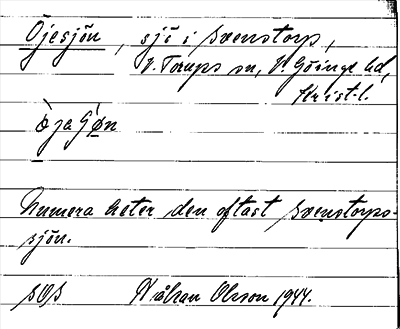 Öjesjön, sjö i Svenstorp,
V. Torups sn, V. Göinge hd,
Krist. l.
òjaʃø̀n
Numera heter den oftast Svenstorps-
sjön.
SOS Olsson 1944.